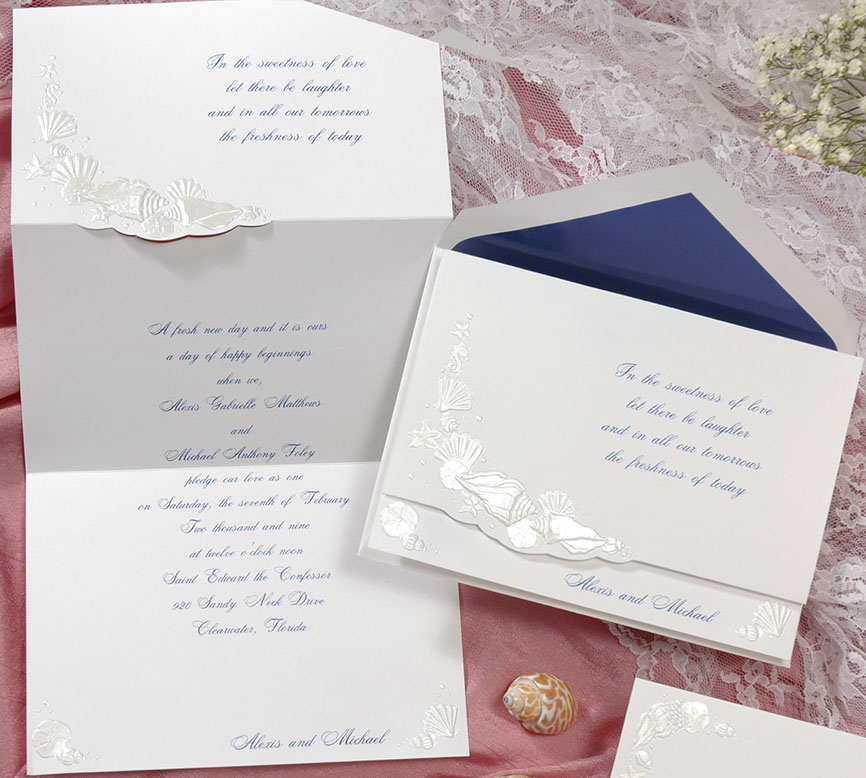 In the sweetness of love
let there be laughter
and in all our tomorrows
the freshness of today
A fresh new day and it is ours
a day of happy beginnings
when we,
Alexis Gabrielle Matthews
and
Michael Anthony Foley
pledge our love as one
on Saturday, the seventh of February
Two thousand and nine
at twelve o'clock noon
Saint Edward the Confessor
920 Sandy Neck Drive
Clearwater, Florida
Alexis and Michael
In the sweetness of love
let there be laughter
and in all our tomorrows
the freshness of today
Alexis and Michael